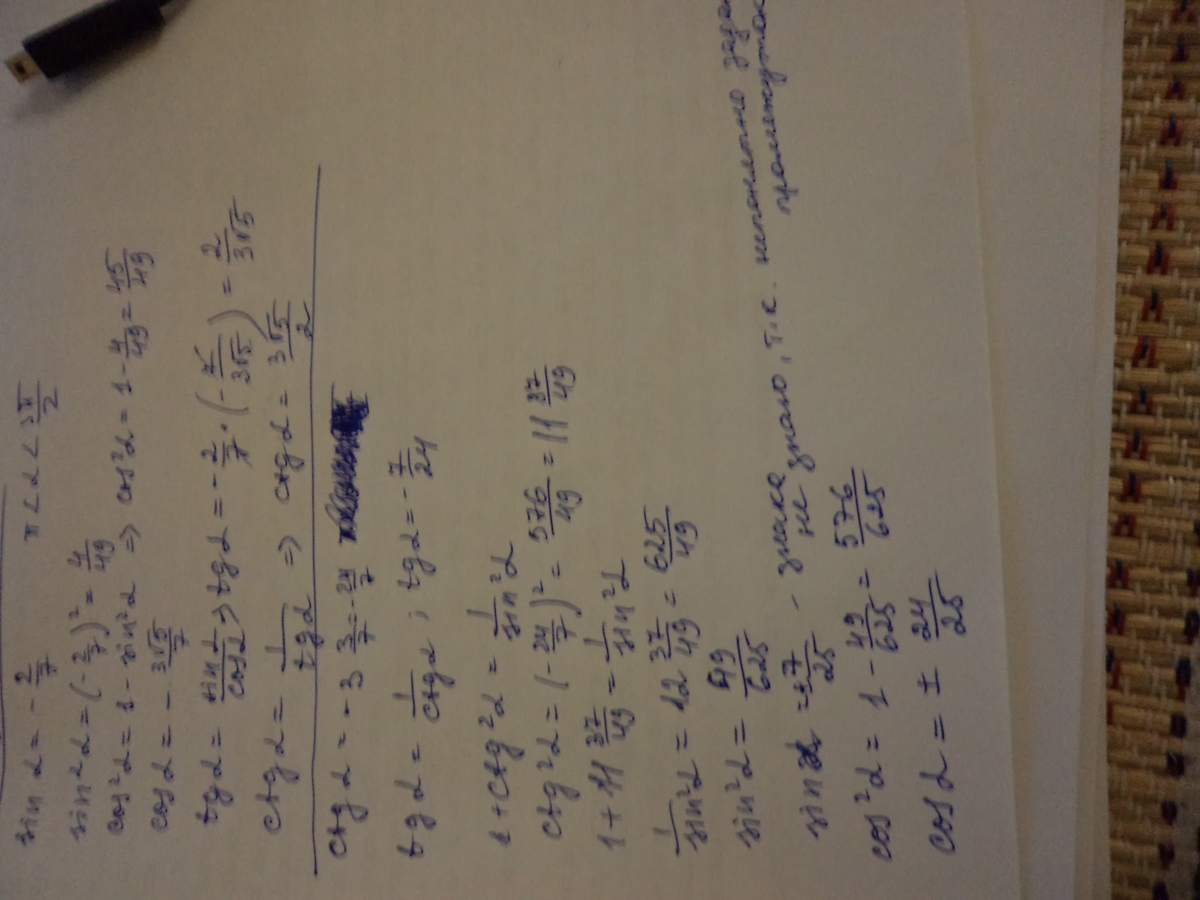 sin α = - 2/7     π < α < 3π/2
sin²α = (- 2/7)² = 4/49
cos²α = 1 - sin²α => cos²α = 1 - 4/49 = 45/49
cos α = - 3√5/7
tg α = sin α/cos α => tg α = - 2/7 · (- 7/3√5) = 2/3√5
ctg α = 1/tg α => ctg α = 3√5/2
ctg α = - 3 3/7 = - 24/7
tg α = 1/ctg α ; tg α = - 7/24
1 + ctg²α = 1/sin²α
ctg²α = (- 24/7)² = 576/49 = 11 37/49
1 + 11 37/49 = 1/sin²α
1/sin²α = 12 37/49 = 625/49
sin²α = 49/625
sin α = ± 7/25 - знака не знаю, т.к. непонятно
промежуток
cos²α = 1 - 49/625 = 576/625
cos α = ± 24/25